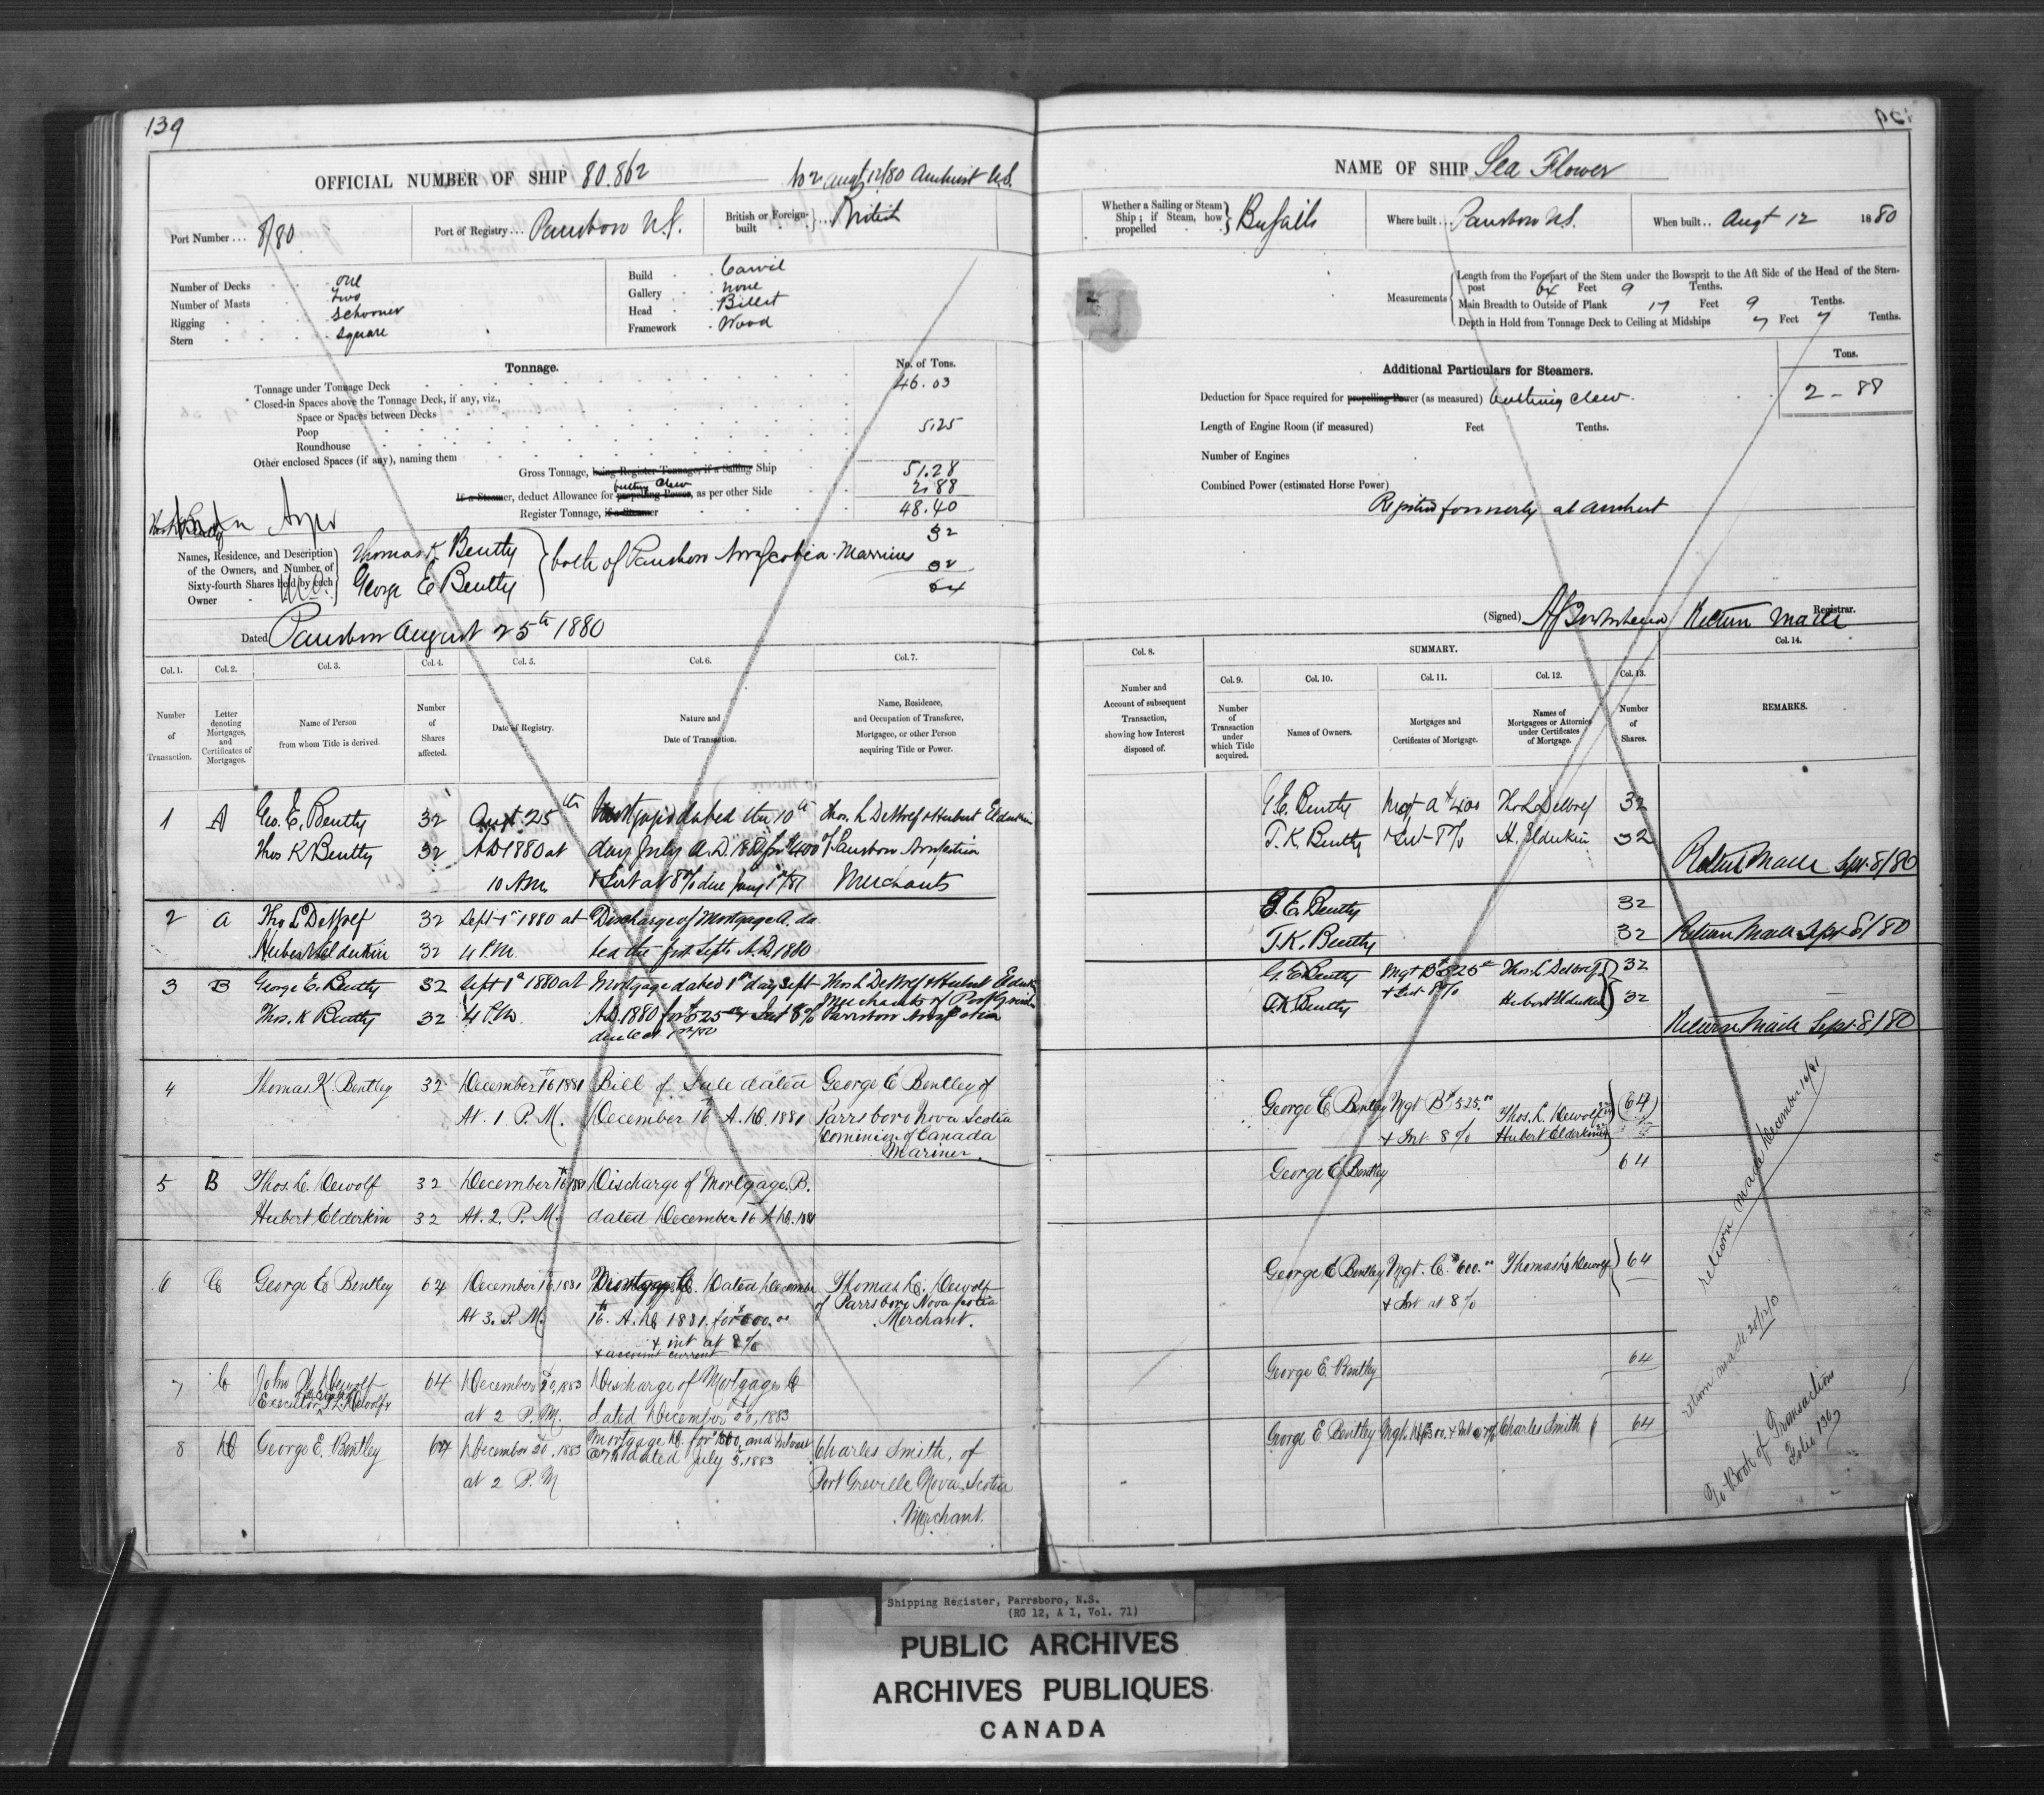 139
OFFICIAL NUMBER OF SHIP 80.862
No 2 Augt 12/80 Amherst N.S.
Port Number ... 8/80
Port of Registry ... Parrsboro N.S.
British or Foreign-built } ... British
Number of Decks one
Number of Masts two
Rigging Schooner
Stern square
Build Carvil
Gallery none
Head Billet
Framework Wood
Tonnage.
No. of Tons.
Tonnage under Tonnage Deck 46.03
Closed-in Spaces above the Tonnage Deck, if any, viz.,
Space or Spaces between Decks
Poop 5.25
Roundhouse
Other enclosed Spaces (if any), naming them
Gross Tonnage, being Register Tonnage, if a Sailing Ship 51.28
If a Steamer, deduct Allowance for propelling Power, as per other Side 2.88
Register Tonnage, if a Steamer 48.40
Names, Residence, and Description of the Owners, and Number of Sixty-fourth Shares held by each Owner
Thomas K Bently 32
both of Parrsboro Nova Scotia Marriners
George E Bently 32
64
Dated Parrsboro August 25th 1880
Col. 1. Col. 2. Col. 3. Col. 4. Col. 5. Col. 6. Col. 7.
Number of Transaction.
Letter denoting Mortgages, and Certificates of Mortgages.
Name of Person from whom Title is derived.
Number of Shares affected.
Date of Registry.
Nature and Date of Transaction.
Name, Residence, and Occupation of Transferee, Mortgagee, or other Person acquiring Title or Power.
1 A Geo. E. Bently 32 Augt 25th Mortgage dated the 10th Thos. L DeWolf & Hubert Elderkin
Thos K Bently 32 A.D 1880 at day July A.D. 1880 for $400 of Parrsboro Nova Scotia
10 A.M. & Int at 8% due Jany 1st/81 Merchants
2 A Tho L DeWolf 32 Sept 1st 1880 at Discharge of Mortgage A. da
Hubert Elderkin 32 4 P.M. ted the first Septr A.D 1880
3 B George E. Bently 32 Sept 1st 1880 at Mortgage dated 1st day Sept Thos L DeWolf & Hubert Elderkin
Thos. K Bently 32 4 P.M. A.D. 1880 for $525 & Int 8% Merchants of Port Greville
Parrsboro Nova Scotia
4 Thomas K. Bentley 32 December 16th 1881 Bill of Sale dated George E Bentley of
At. 1 P.M. December 16th A.D. 1881 Parrsboro Nova Scotia
Dominion of Canada
Mariner.
5 B Thos. L. Dewolf 32 December 16th 1881 Discharge of Mortgage B.
Hubert Elderkin 32 At. 2. P.M. dated December 16th A.D. 1881
6 C George E Bentley 64 December 16th, 1881 Mortgage C. Dated December Thomas L. Dewolf
At 3. P.M. 16th A.D. 1881. for $600.00 of Parrsboro Nova Scotia
+ int at 8% Merchant.
+ account current
7 C John Dewolf 64 December 20, 1883 Discharge of Mortgage C
Executor T.L. Dewolf at 2 P.M. dated December 20, 1883
8 D George E. Bentley 64 December 20, 1883 Mortgage D. for $300, and interest Charles Smith, of
at 2 P.M dated July 3, 1883 Port Greville Nova Scotia
Merchant.
NAME OF SHIP Sea Flower
Whether a Sailing or Steam Ship; if Steam, how propelled } By Sails
Where built ... Parrsboro N.S.
When built .. Augt 12 1880
Measurements
Length from the Forepart of the Stem under the Bowsprit to the Aft Side of the Head of the Stern-
post 64 Feet 9 Tenths.
Main Breadth to Outside of Plank 17 Feet 9 Tenths.
Depth in Hold from Tonnage Deck to Ceiling at Midships 7 Feet 7 Tenths.
Additional Particulars for Steamers.
Tons.
Deduction for Space required for propelling Power (as measured) berthing Crew 2 - 88
Length of Engine Room (if measured) Feet Tenths.
Number of Engines
Combined Power (estimated Horse Power)
Registered formerly at Amherst
(Signed) Registrar.
Return Made
Col. 8. SUMMARY. Col. 14.
Col. 9. Col. 10. Col. 11. Col. 12. Col. 13.
Number and Account of subsequent Transaction, showing how Interest disposed of.
Number of Transaction under which Title acquired.
Names of Owners.
Mortgages and Certificates of Mortgage.
Names of Mortgagees or Attornies under Certificates of Mortgage.
Number of Shares.
REMARKS.
G E. Bently Mgt A $400 Tho L DeWolf 32
T. K. Bently & Int 8% H. Elderkin 32
Return Made Sept 8/80
G. E. Bently 32
T. K. Bently 32 Return Made Sept 8/80
G E Bently Mgt B $525 Thos. L DeWolf 32
T K Bently & Int 8% Hubert Elderkin 32
Return Made Sept 8/80
George E Bentley Mgt B $525.00 Thos. L. Dewolf (64)
+ Int 8% Hubert Elderkin
George E Bentley 64
George E Bentley Mgt. C. $600.00 Thomas L Dewolf 64
+ Int at 8%
George E. Bentley 64
George E Bentley Mgt. D $300. + Int 7% Charles Smith 64
return made December 16/81
return made 20/12/83
To Book of Transactions
Folio 130
Shipping Register, Parrsboro, N.S.
(RG 12, A 1, Vol. 71)
PUBLIC ARCHIVES
ARCHIVES PUBLIQUES
CANADA